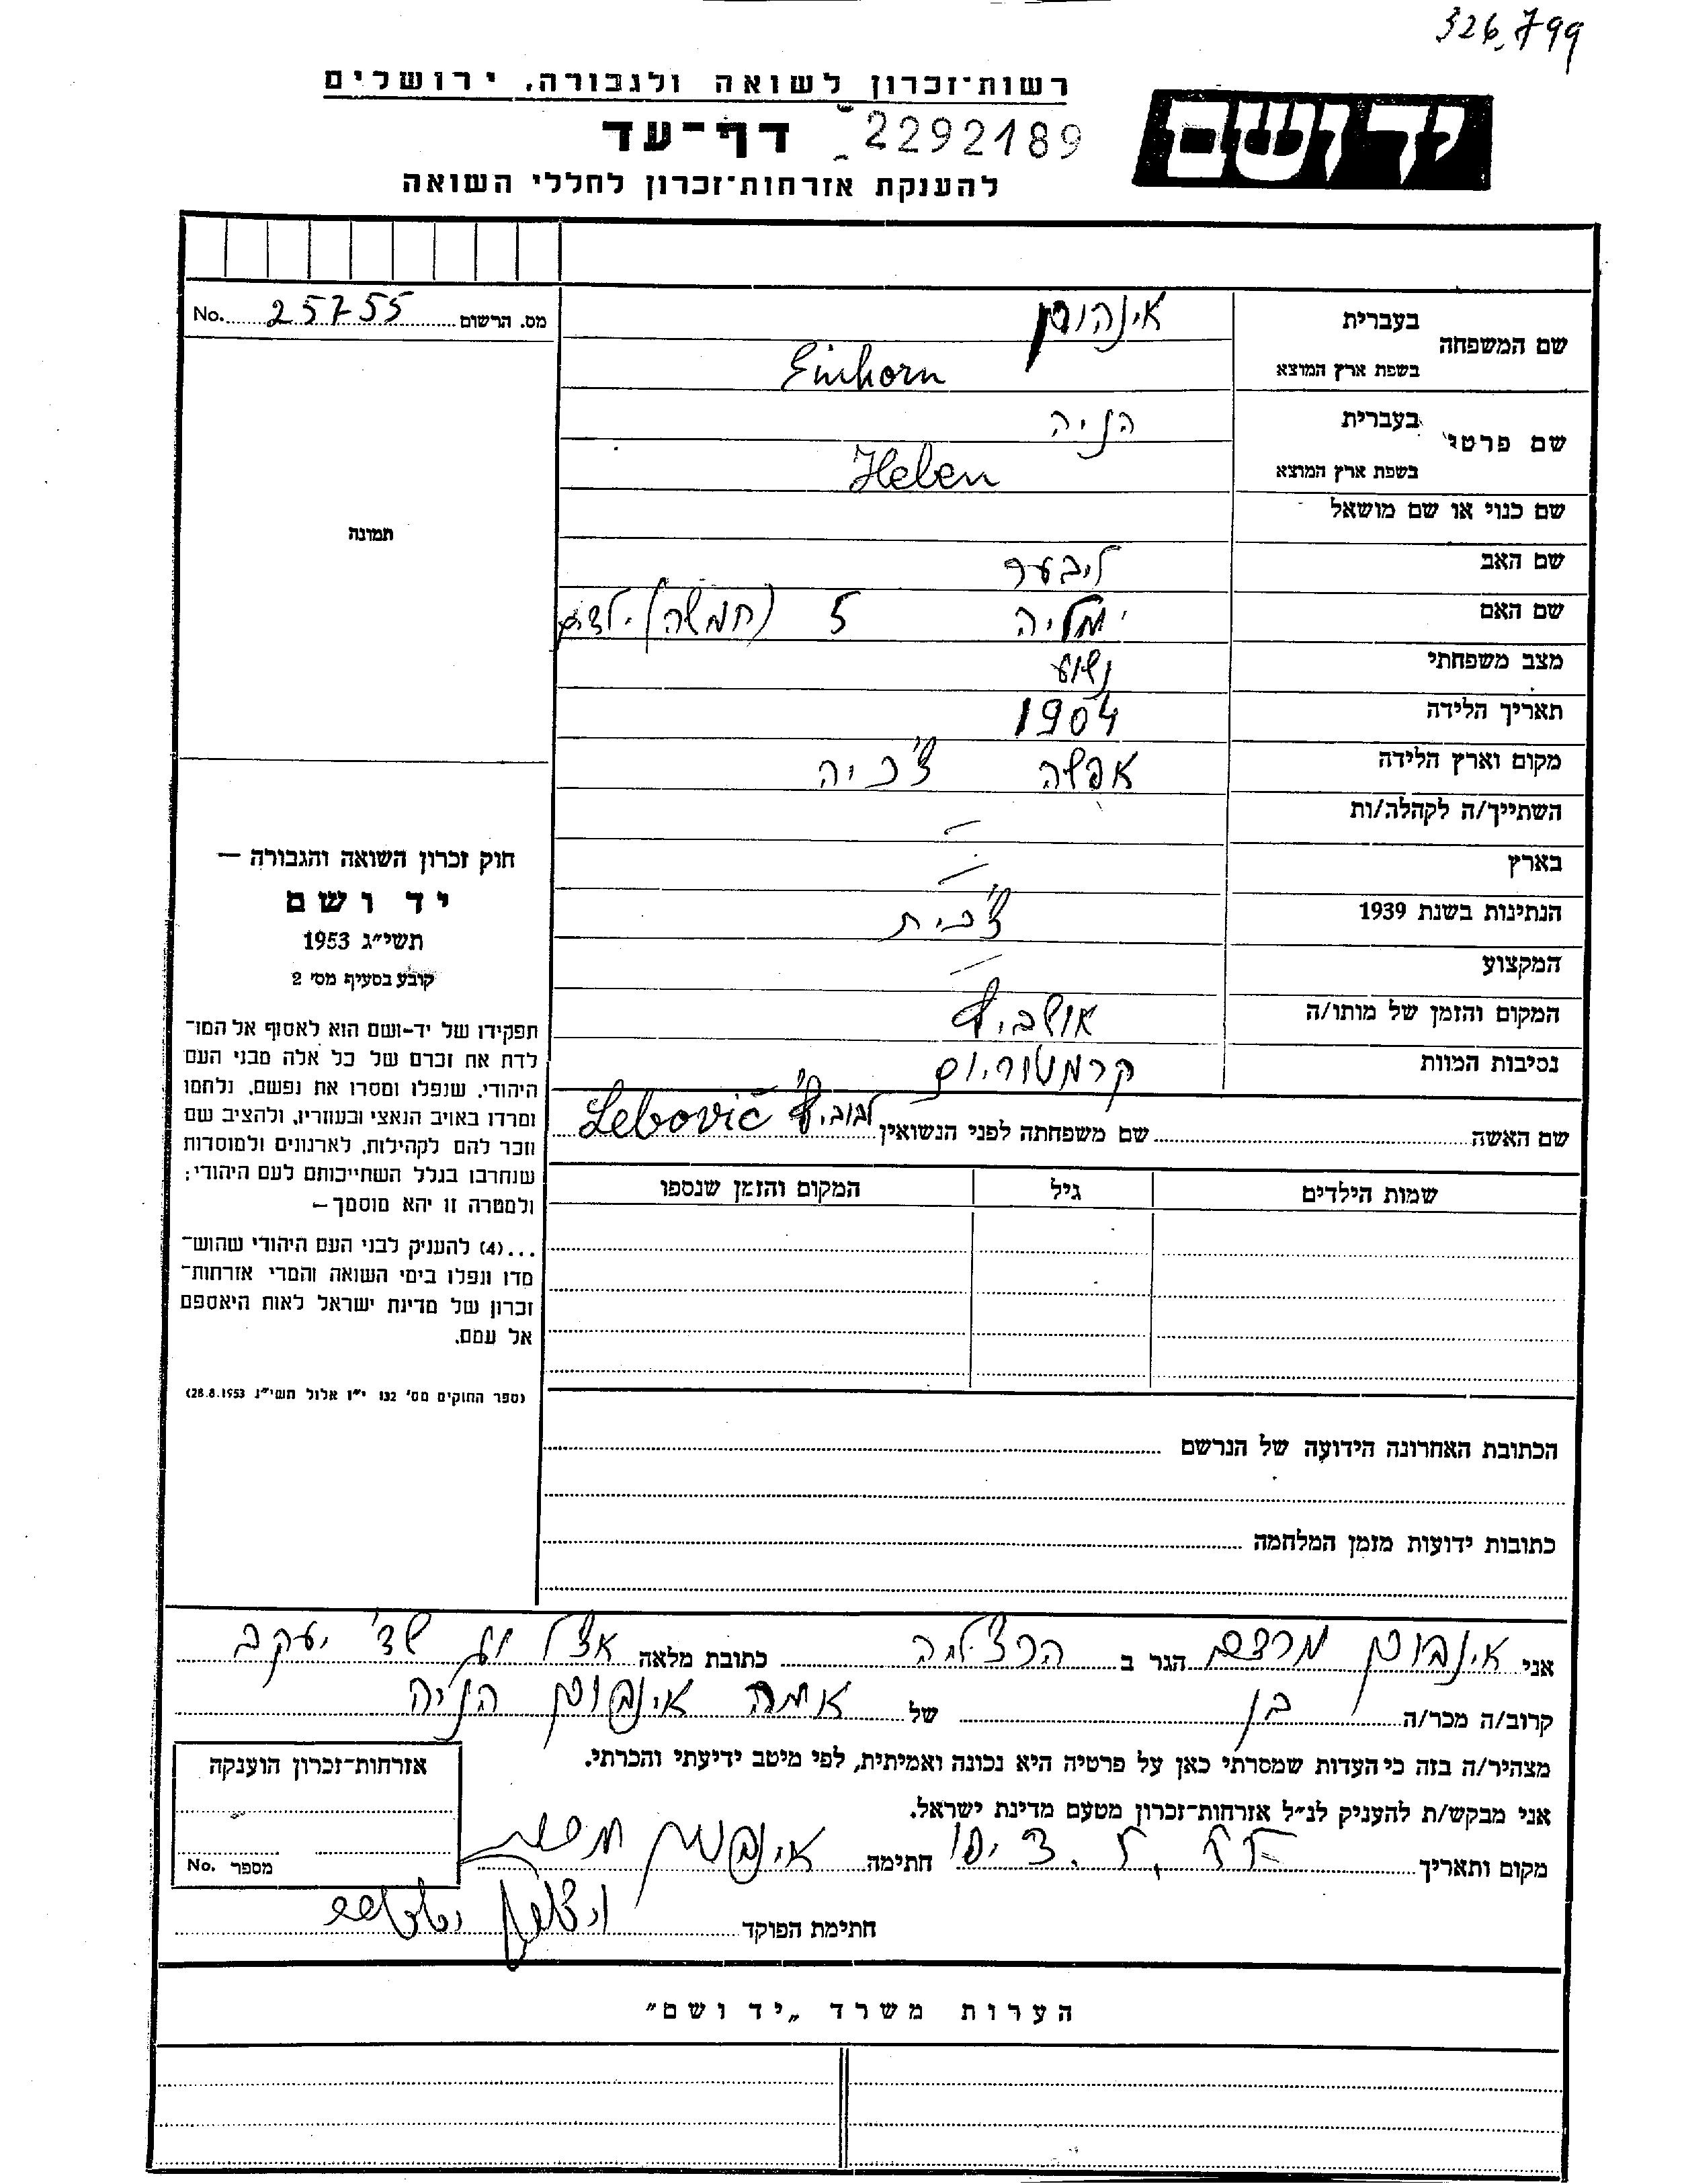 326,799
רשות־זכרון לשואה ולגבורה, ירושלים
יד ושם
דף־עד 2292189
להענקת אזרחות־זכרון לחללי השואה
מס. הרשום 25755 No.
שם המשפחה
בעברית אינהורן
בשפת ארץ המוצא Einhorn
שם פרטי
בעברית הניה
בשפת ארץ המוצא Helen
שם כנוי או שם מושאל
שם האב ליבער
שם האם 5 (חמשה) ילדים
מצב משפחתי נשוי
תאריך הלידה 1904
מקום וארץ הלידה אפשה צ'כיה
השתייך/ה לקהלה/ות –
בארץ –
הנתינות בשנת 1939 צ'כית
המקצוע –
המקום והזמן של מותו/ה אושביץ
נסיבות המוות קרמטוריום
שם האשה שם משפחתה לפני הנשואין לבוביץ' Lebovič
שמות הילדים גיל המקום והזמן שנספו
הכתובת האחרונה הידועה של הנרשם
כתובות ידועות מזמן המלחמה
תמונה
חוק זכרון השואה והגבורה –
יד ושם
תשי״ג 1953
קובע בסעיף מס׳ 2
תפקידו של יד-ושם הוא לאסוף אל המו־
לדת את זכרם של כל אלה מבני העם
היהודי, שנפלו ומסרו את נפשם, נלחמו
ומרדו באויב הנאצי ובעוזריו, ולהציב שם
וזכר להם לקהילות, לארגונים ולמוסדות
שנחרבו בגלל השתייכותם לעם היהודי;
ולמטרה זו יהא מוסמך –
...(4) להעניק לבני העם היהודי שהוש־
מדו ונפלו בימי השואה והמרי אזרחות־
זכרון של מדינת ישראל לאות היאספם
אל עמם.
(ספר החוקים מס׳ 132 י״ז אלול תשי״ג 28.8.1953)
אני אינהורן הגר ב הרצליה כתובת מלאה יעקב
קרוב/ה מכר/ה בן של אמה אינהורן הניה
מצהיר/ה בזה כי העדות שמסרתי כאן על פרטיה היא נכונה ואמיתית, לפי מיטב ידיעתי והכרתי.
אני מבקש/ת להעניק לנ״ל אזרחות־זכרון מטעם מדינת ישראל.
מקום ותאריך חתימה אינהורן
חתימת הפוקד
אזרחות־זכרון הוענקה
מספר No.
הערות משרד „יד ושם”